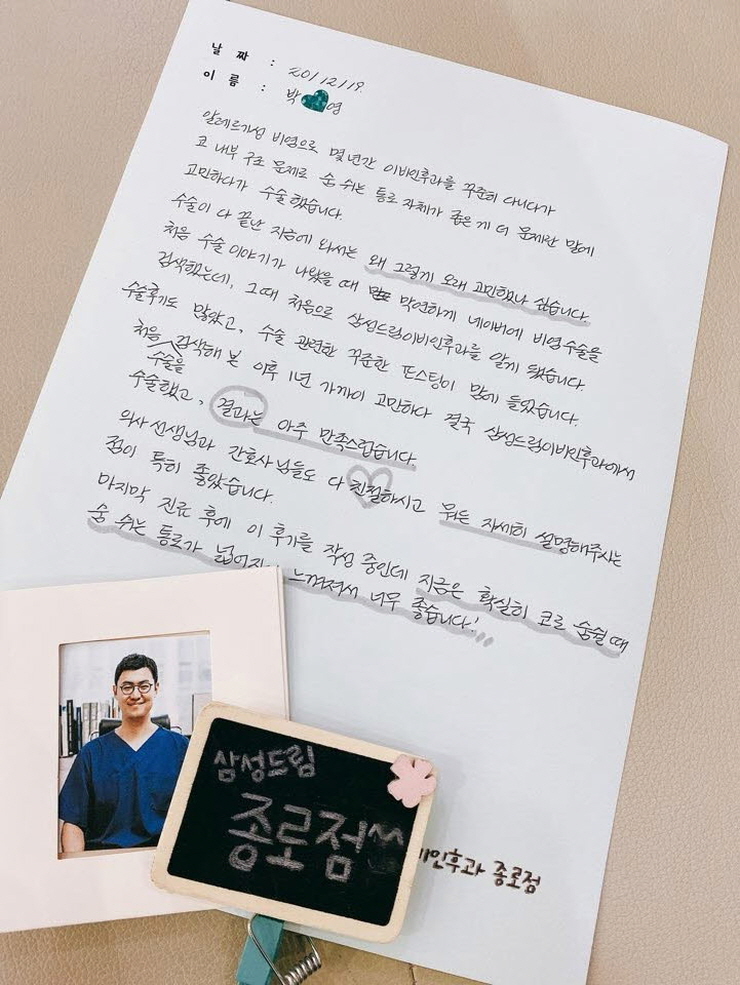 날 짜 : 20/12/19.
이 름 : 박 영
알레르기성 비염으로 몇 년간 이비인후과를 꾸준히 다니다가
코 내부 구조 문제로 숨 쉬는 통로 자체가 좁은 게 더 문제란 말에
고민하다가 수술했습니다.
수술이 다 끝난 지금에 와서는 왜 그렇게 오래 고민했나 싶습니다.
처음 수술 이야기가 나왔을 때 막연하게 네이버에 비염수술을
검색했는데, 그때 처음으로 삼성드림이비인후과를 알게 됐습니다.
수술후기도 많았고, 수술 관련한 꾸준한 포스팅이 맘에 들었습니다.
처음 수술을 검색해 본 이후 1년 가까이 고민하다 결국 삼성드림이비인후과에서
수술했고, 결과는 아주 만족스럽습니다.
의사선생님과 간호사님들도 다 친절하시고 뭐든 자세히 설명해주시는
점이 특히 좋았습니다.
마지막 진료 후에 이 후기를 작성 중인데 지금은 확실히 코로 숨쉴 때
숨 쉬는 통로가 느껴져서 너무 좋습니다!
삼성드림
종로점
인후과 종로점